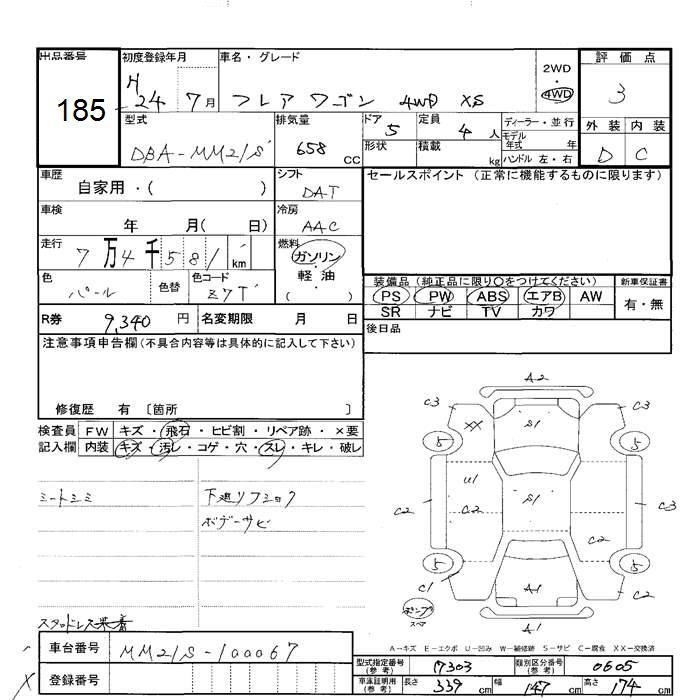 出品番号 初度登録年月 車名・グレード 2WD ・ 4WD 評価点
185 H 24 7月 フレア ワゴン 4WD XS 3
型式 DBA-MM21S 排気量 658 cc ドア 5 定員 4人 ディーラー・並行 外装 内装
形状 積載 kg モデル年式 年 ハンドル 左・右 D C
車歴 自家用・( ) シフト DAT セールスポイント (正常に機能するものに限ります)
車検 年 月( 日) 冷房 AAC
走行 7万4千581km 燃料 ガソリン・軽・油 ( )
色 パール 色替 色コード Z7T 装備品 (純正品に限り〇をつけてください) 新車保証書
PS PW ABS エアB AW 有・無
SR ナビ TV カワ
R券 9,340 円 名変期限 月 日 後日品
注意事項申告欄(不具合内容等は具体的に記入して下さい)
修復歴 有 〔箇所
検査員 FW キズ・飛石・ヒビ割・リペア跡・×要
記入欄 内装 キズ・汚レ・コゲ・穴・スレ・キレ・破レ
シートシミ 下廻リフショク
ボデーサビ
スタッドレス装着
A2
C3 C3
XX S1
5 5
U1 S1
C2 C2 C3
C2
5 5
C1 A1 C2
ポンプ
スペア
A1
A-キズ E-エクボ U-凹み W-補修跡 S-サビ C-腐食 XX-交換済
車台番号 MM21S-100067
登録番号
型式指定番号(参考) 17303 類別区分番号(参考) 0605
車庫証明用(参考) 長さ 339 cm 幅 147 cm 高さ 174 cm